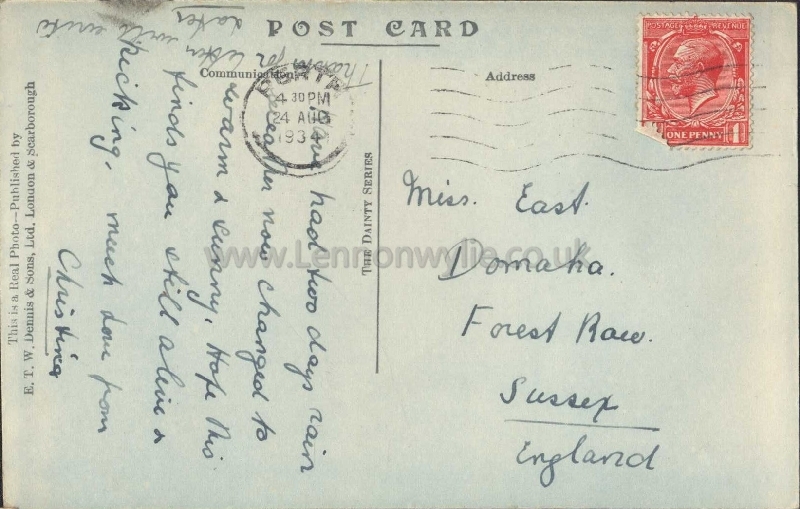 POST CARD
Communication
Address
Have had two days rain
weather now changed to
warm & sunny. Hope this
finds you still alive &
kicking. much love from
Christina
Thanks
for letter will write
later
PERTH
4 30 PM
24 AUG
1934
POSTAGE REVENUE
ONE PENNY 1D
Miss. East.
Domaha.
Forest Row.
Sussex
England
THE DAINTY SERIES
This is a Real Photo—Published by
E. T. W. Dennis & Sons, Ltd. London & Scarborough
www.Lennonwylie.co.uk